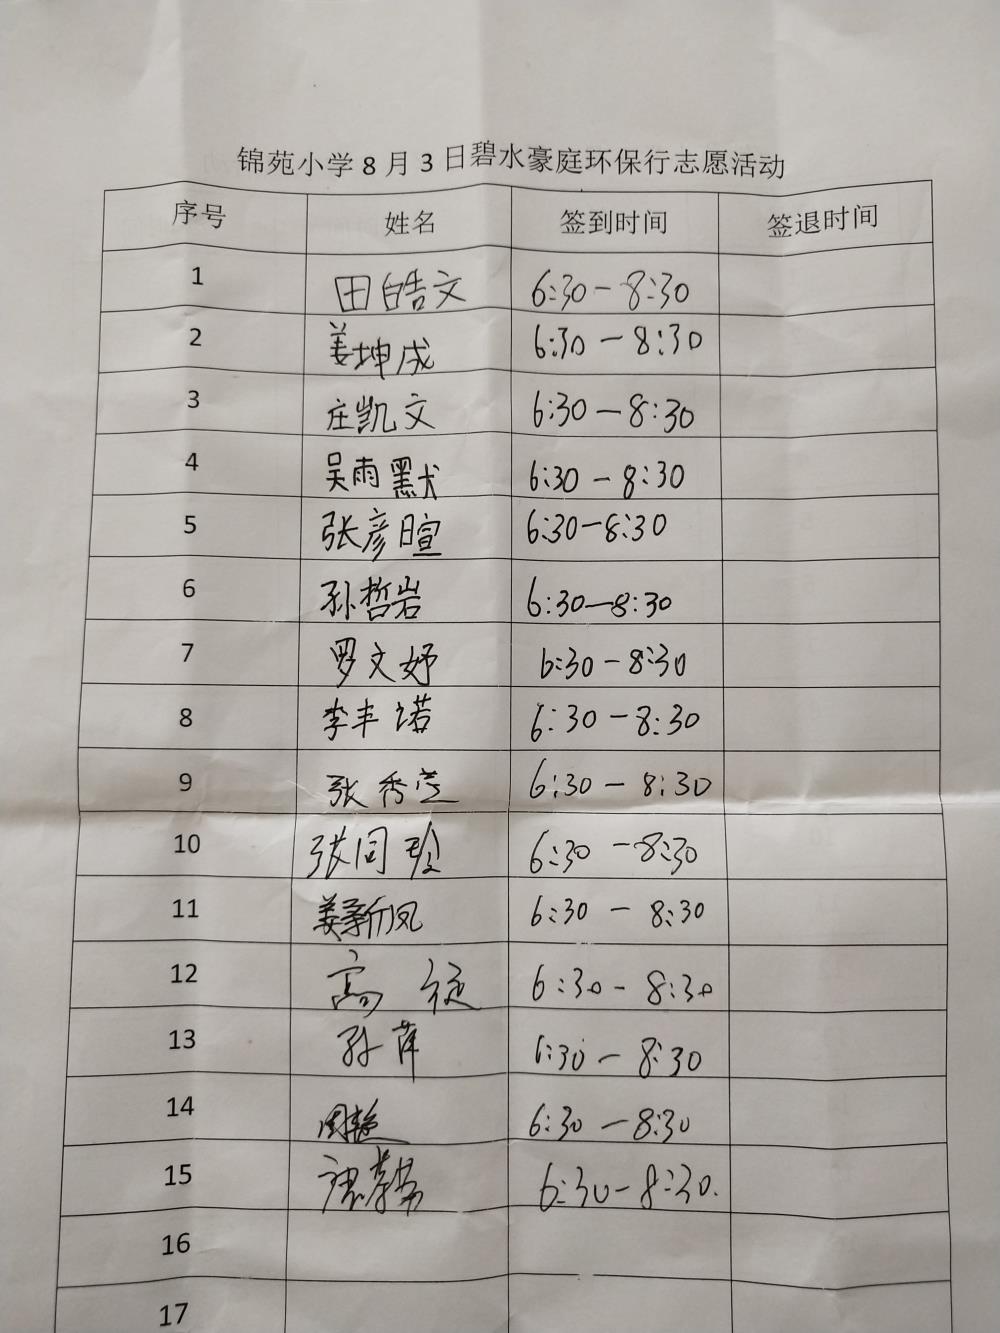 锦苑小学8月3日碧水豪庭环保行志愿活动
序号 姓名 签到时间 签退时间
1 田皓文 6:30-8:30
2 姜坤成 6:30-8:30
3 庄凯文 6:30-8:30
4 吴雨默 6:30-8:30
5 张彦暄 6:30-8:30
6 孙哲岩 6:30-8:30
7 罗文妤 6:30-8:30
8 李丰诺 6:30-8:30
9 张秀 6:30-8:30
10 张同 6:30-8:30
11 姜新凤 6:30-8:30
12 高 6:30-8:30
13 孙萍 6:30-8:30
14 周艳 6:30-8:30
15 6:30-8:30.
16
17